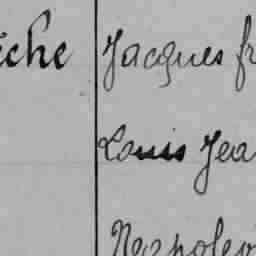 iche Jacques fr
Louis Jea
Napoleon